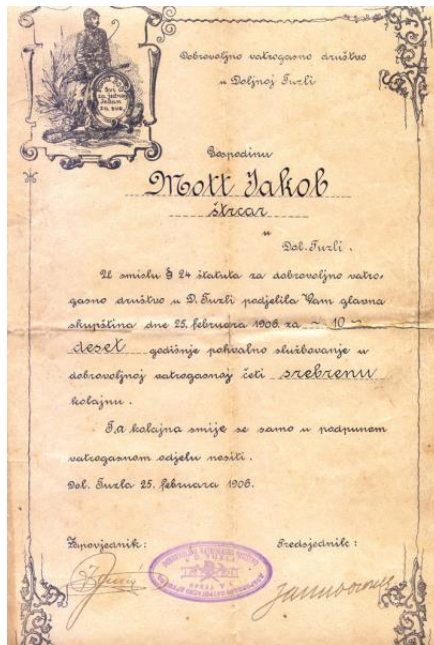 svi
za jednog
jedan
za sve.
Dobrovoljno vatrogasno društvo
u Doljnoj Tuzli
Gospodinu
Mott Jakob
štrcar
u
Dol. Tuzli.
U smislu § 24 štatuta za dobrovoljno vatro-
gasno društvo u D. Tuzli podjelila Vam glavna
skupština dne 25. februara 1906. za ~ 10 ~
deset godišnje pohvalno službovanje u
dobrovoljnoj vatrogasnoj četi srebrenu
kolajnu.
Ta kolajna smije se samo u podpunom
vatrogasnom odjelu nositi.
Dol. Tuzla 25. februara 1906.
Zapovjednik: Predsjednik: